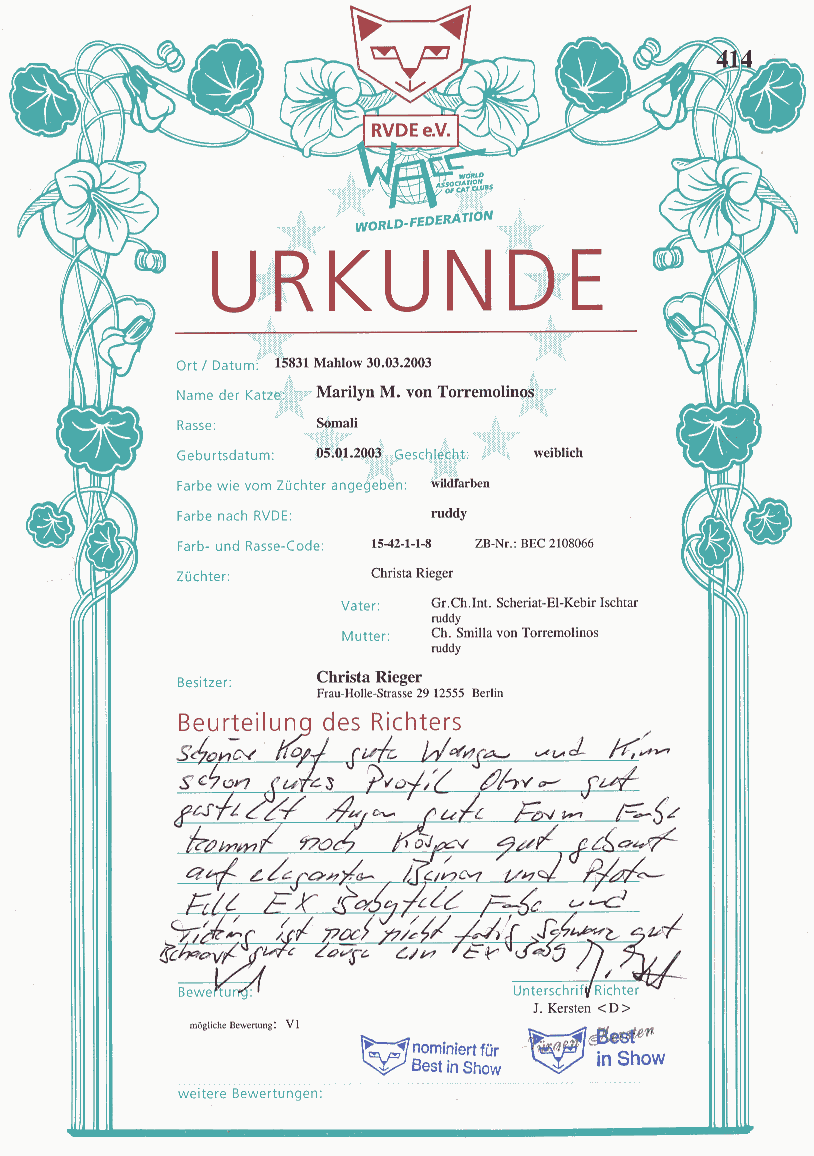 414
RVDE e.V.
WACC WORLD
ASSOCIATION
OF CAT CLUBS
WORLD-FEDERATION
URKUNDE
Ort / Datum: 15831 Mahlow 30.03.2003
Name der Katze: Marilyn M. von Torremolinos
Rasse: Somali
Geburtsdatum: 05.01.2003 Geschlecht: weiblich
Farbe wie vom Züchter angegeben: wildfarben
Farbe nach RVDE: ruddy
Farb- und Rasse-Code: 15-42-1-1-8 ZB-Nr.: BEC 2108066
Züchter: Christa Rieger
Vater: Gr.Ch.Int. Scheriat-El-Kebir Ischtar
ruddy
Mutter: Ch. Smilla von Torremolinos
ruddy
Besitzer: Christa Rieger
Frau-Holle-Strasse 29 12555 Berlin
Beurteilung des Richters
Schöner Kopf gute Wangen und Kinn
schon gutes Profil Ohren gut
gestellt Augen gute Form Farbe
kommt noch Körper gut gebaut
auf eleganten Beinen und Pfoten
Fell EX Babyfell Farbe und
Ticking ist noch nicht fertig Schwanz gut
behaart gute Länge ein EX Baby
V1
Bewertung: Unterschrift Richter
J. Kersten <D>
mögliche Bewertung: V1
Jürgen Kersten
nominiert für
Best in Show
Best
in Show
weitere Bewertungen: